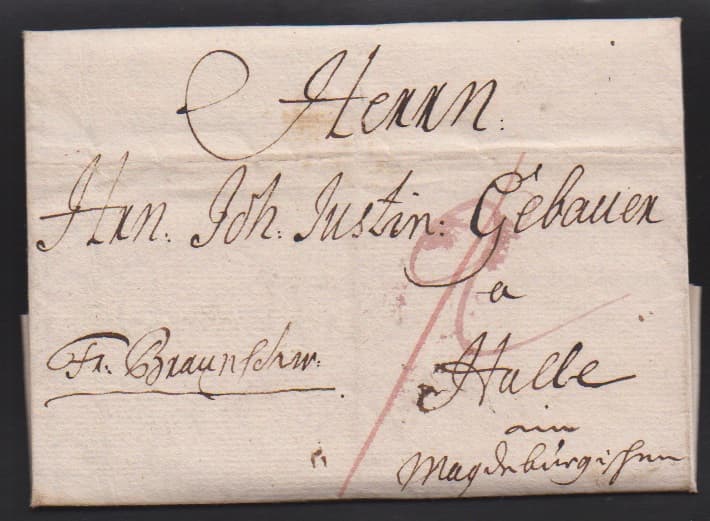 Herrn
Hrn: Joh: Justin: Gebauer
a
Fr: Braunschw:
Halle
im
Magdebürgischen